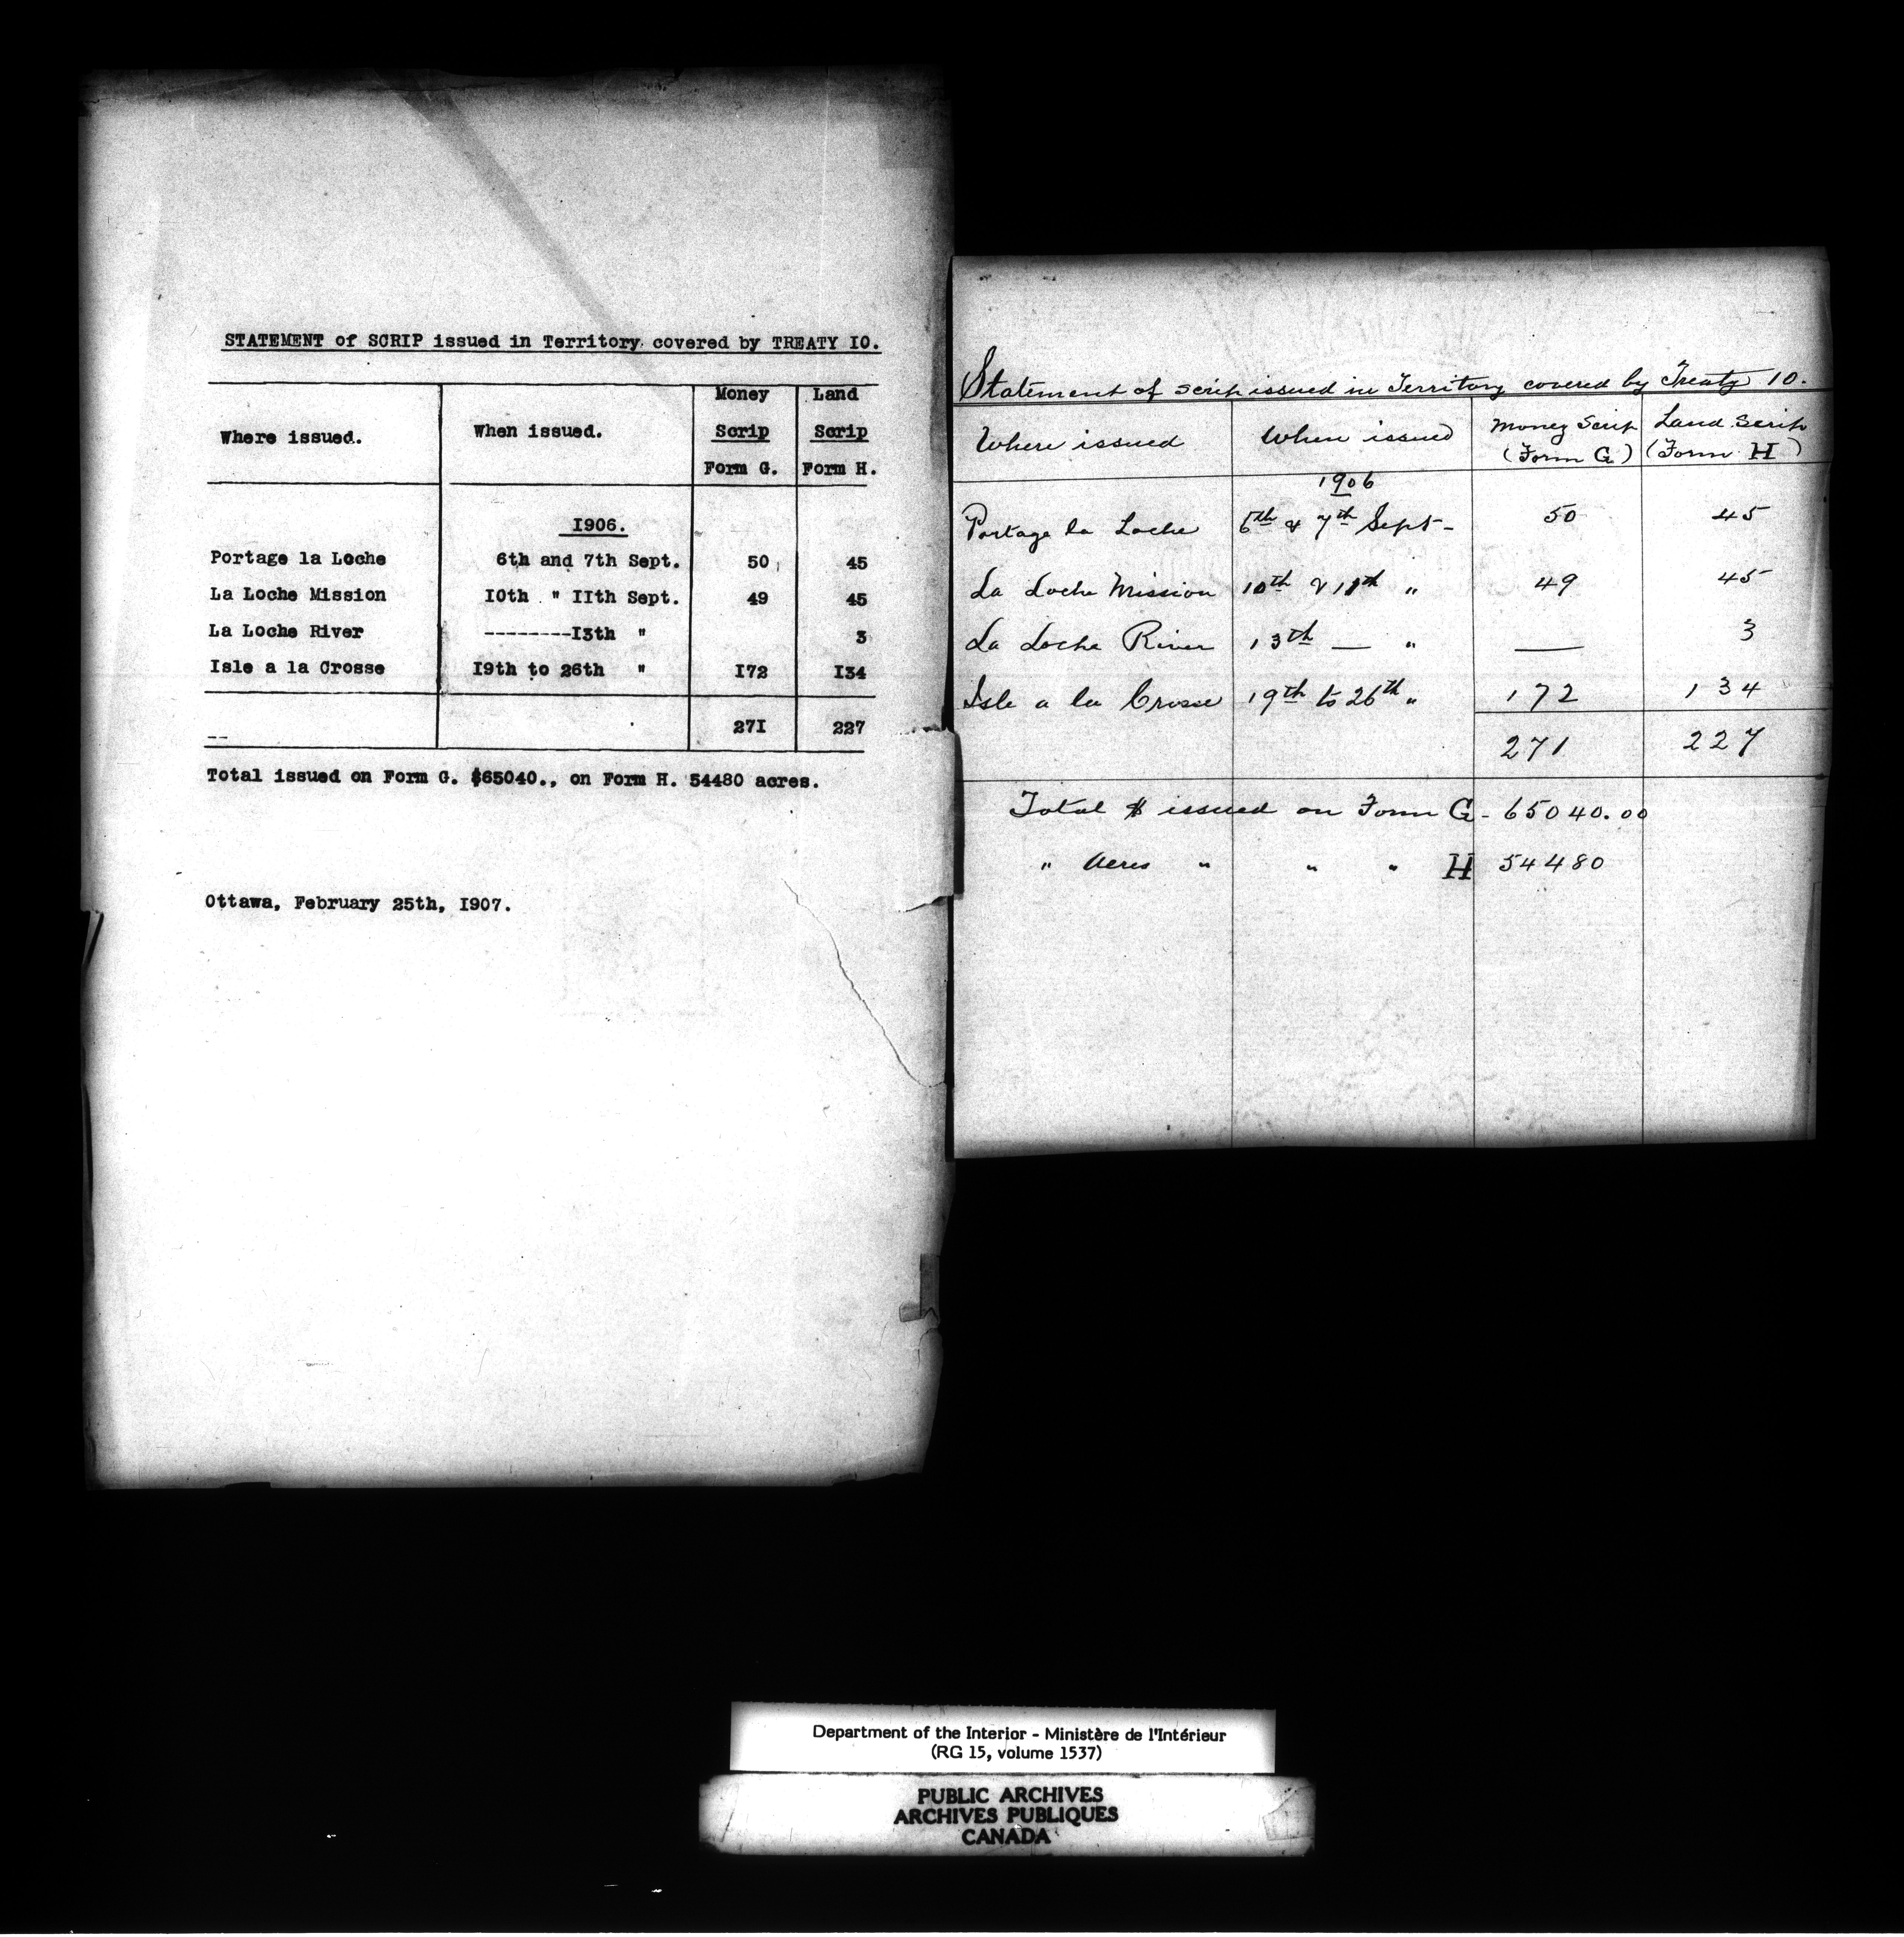 STATEMENT of SCRIP issued in Territory covered by TREATY I0.
Where issued. When issued. Money Scrip Form G. Land Scrip Form H.
I906.
Portage la Loche 6th and 7th Sept. 50 45
La Loche Mission I0th " IIth Sept. 49 45
La Loche River --------I3th " 3
Isle a la Crosse I9th to 26th " I72 I34
-- 27I 227
Total issued on Form G. $65040., on Form H. 54480 acres.
Ottawa, February 25th, I907.
Statement of scrip issued in Territory covered by Treaty 10.
Where issued When issued Money Scrip (Form G) Land Scrip (Form H)
1906
Portage la Loche 6th & 7th Sept- 50 45
La Loche Mission 10th & 11th " 49 45
La Loche River 13th — " — 3
Isle a la Crosse 19th to 26th " 172 134
271 227
Total $ issued on Form G - 65040.00
" Acres " " " H 54480
Department of the Interior - Ministère de l'Intérieur
(RG 15, volume 1537)
PUBLIC ARCHIVES
ARCHIVES PUBLIQUES
CANADA